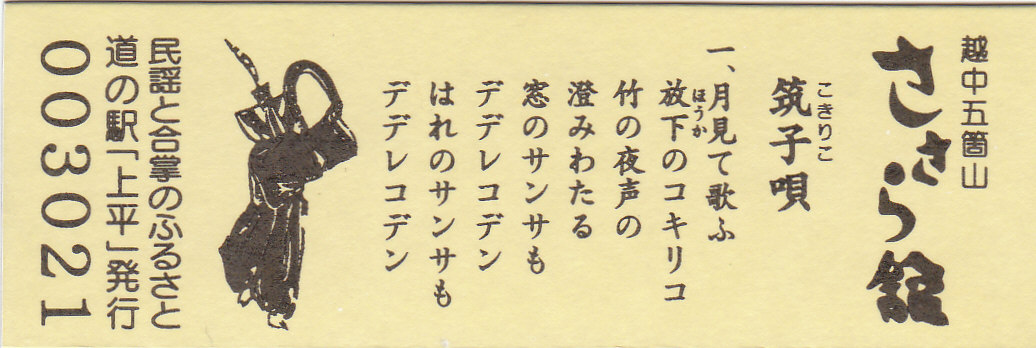 越中五箇山
ささら館
こきりこ
筑子唄
一、月見て歌ふ
ほうか
放下のコキリコ
竹の夜声の
澄みわたる
窓のサンサも
デデレコデン
はれのサンサも
デデレコデン
民謡と合掌のふるさと
道の駅「上平」発行
003021